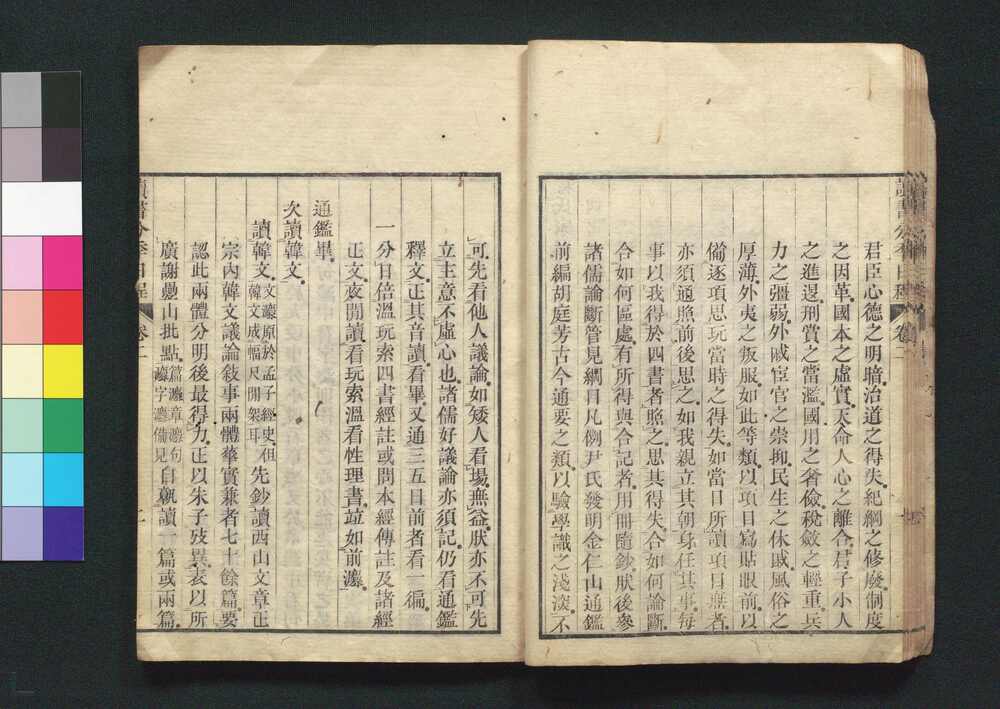 君臣心德之明暗治道之得失紀綱之修廢制度
之因革國本之虛實天命人心之離合君子小人
之進退刑賞之當濫國用之奢儉稅斂之輕重兵
力之彊弱外戚宦官之崇抑民生之休戚風俗之
厚薄外夷之叛服如此等類以項目寫貼眼前以
備逐項思玩當時之得失如當日所讀項目無者
亦須通照前後思之如我親立其朝身任其事每
事以我得於四書者照之思其得失合如何論斷
合如何區處有所得與合記者用冊隨鈔然後參
諸儒論斷管見綱目凡例尹氏發明金仁山通鑑
前編胡庭芳古今通要之類以驗學識之淺深不
讀書分年日程 卷二
可先看他人議論如矮人看場無益然亦不可先
立主意不虛心也諸儒好議論亦須記仍看通鑑
釋文正其音讀看畢又通三五日前者看一徧
一分日倍溫玩索四書經註或問本經傳註及諸經
正文夜閒讀看玩索溫看性理書竝如前灋
通鑑畢
次讀韓文
讀韓文文灋原於孟子經史但韓文成幅尺閒架耳先鈔讀西山文章正
宗內韓文議論敘事兩體華實兼者七十餘篇要
認此兩體分明後最得力正以朱子攷異表以所
廣謝疊山批點篇灋章灋句灋字灋備見自熟讀一篇或兩篇
讀書分年日程 卷二